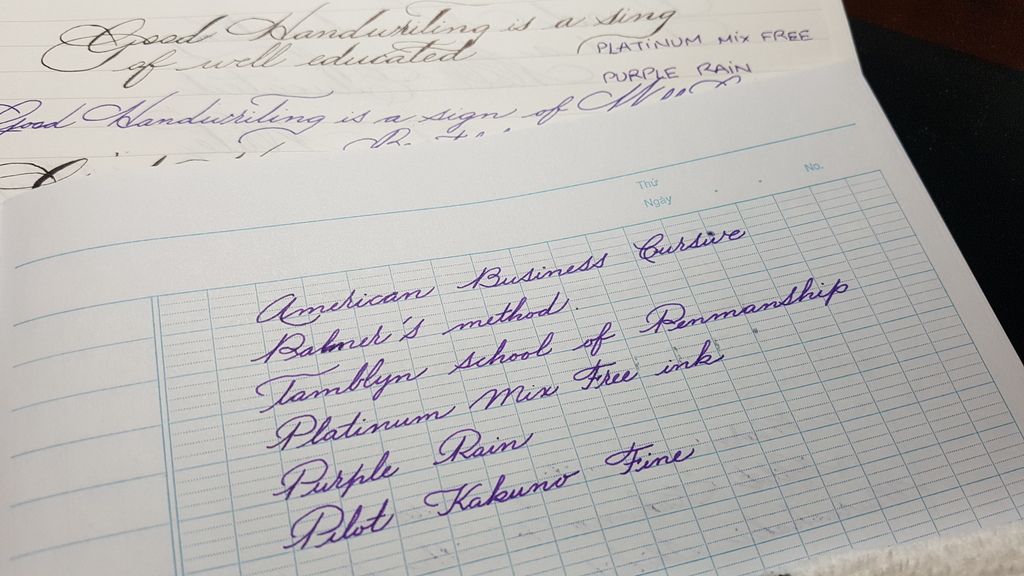 Good Handwriting is a sing
of well educated
PLATINUM MIX FREE
PURPLE RAIN
Good Handwriting is a sign of
Thứ
Ngày
No.
American Business Cursive
Palmer's method.
Tamblyn school of Penmanship
Platinum Mix Free ink
Purple Rain
Pilot Kakuno Fine